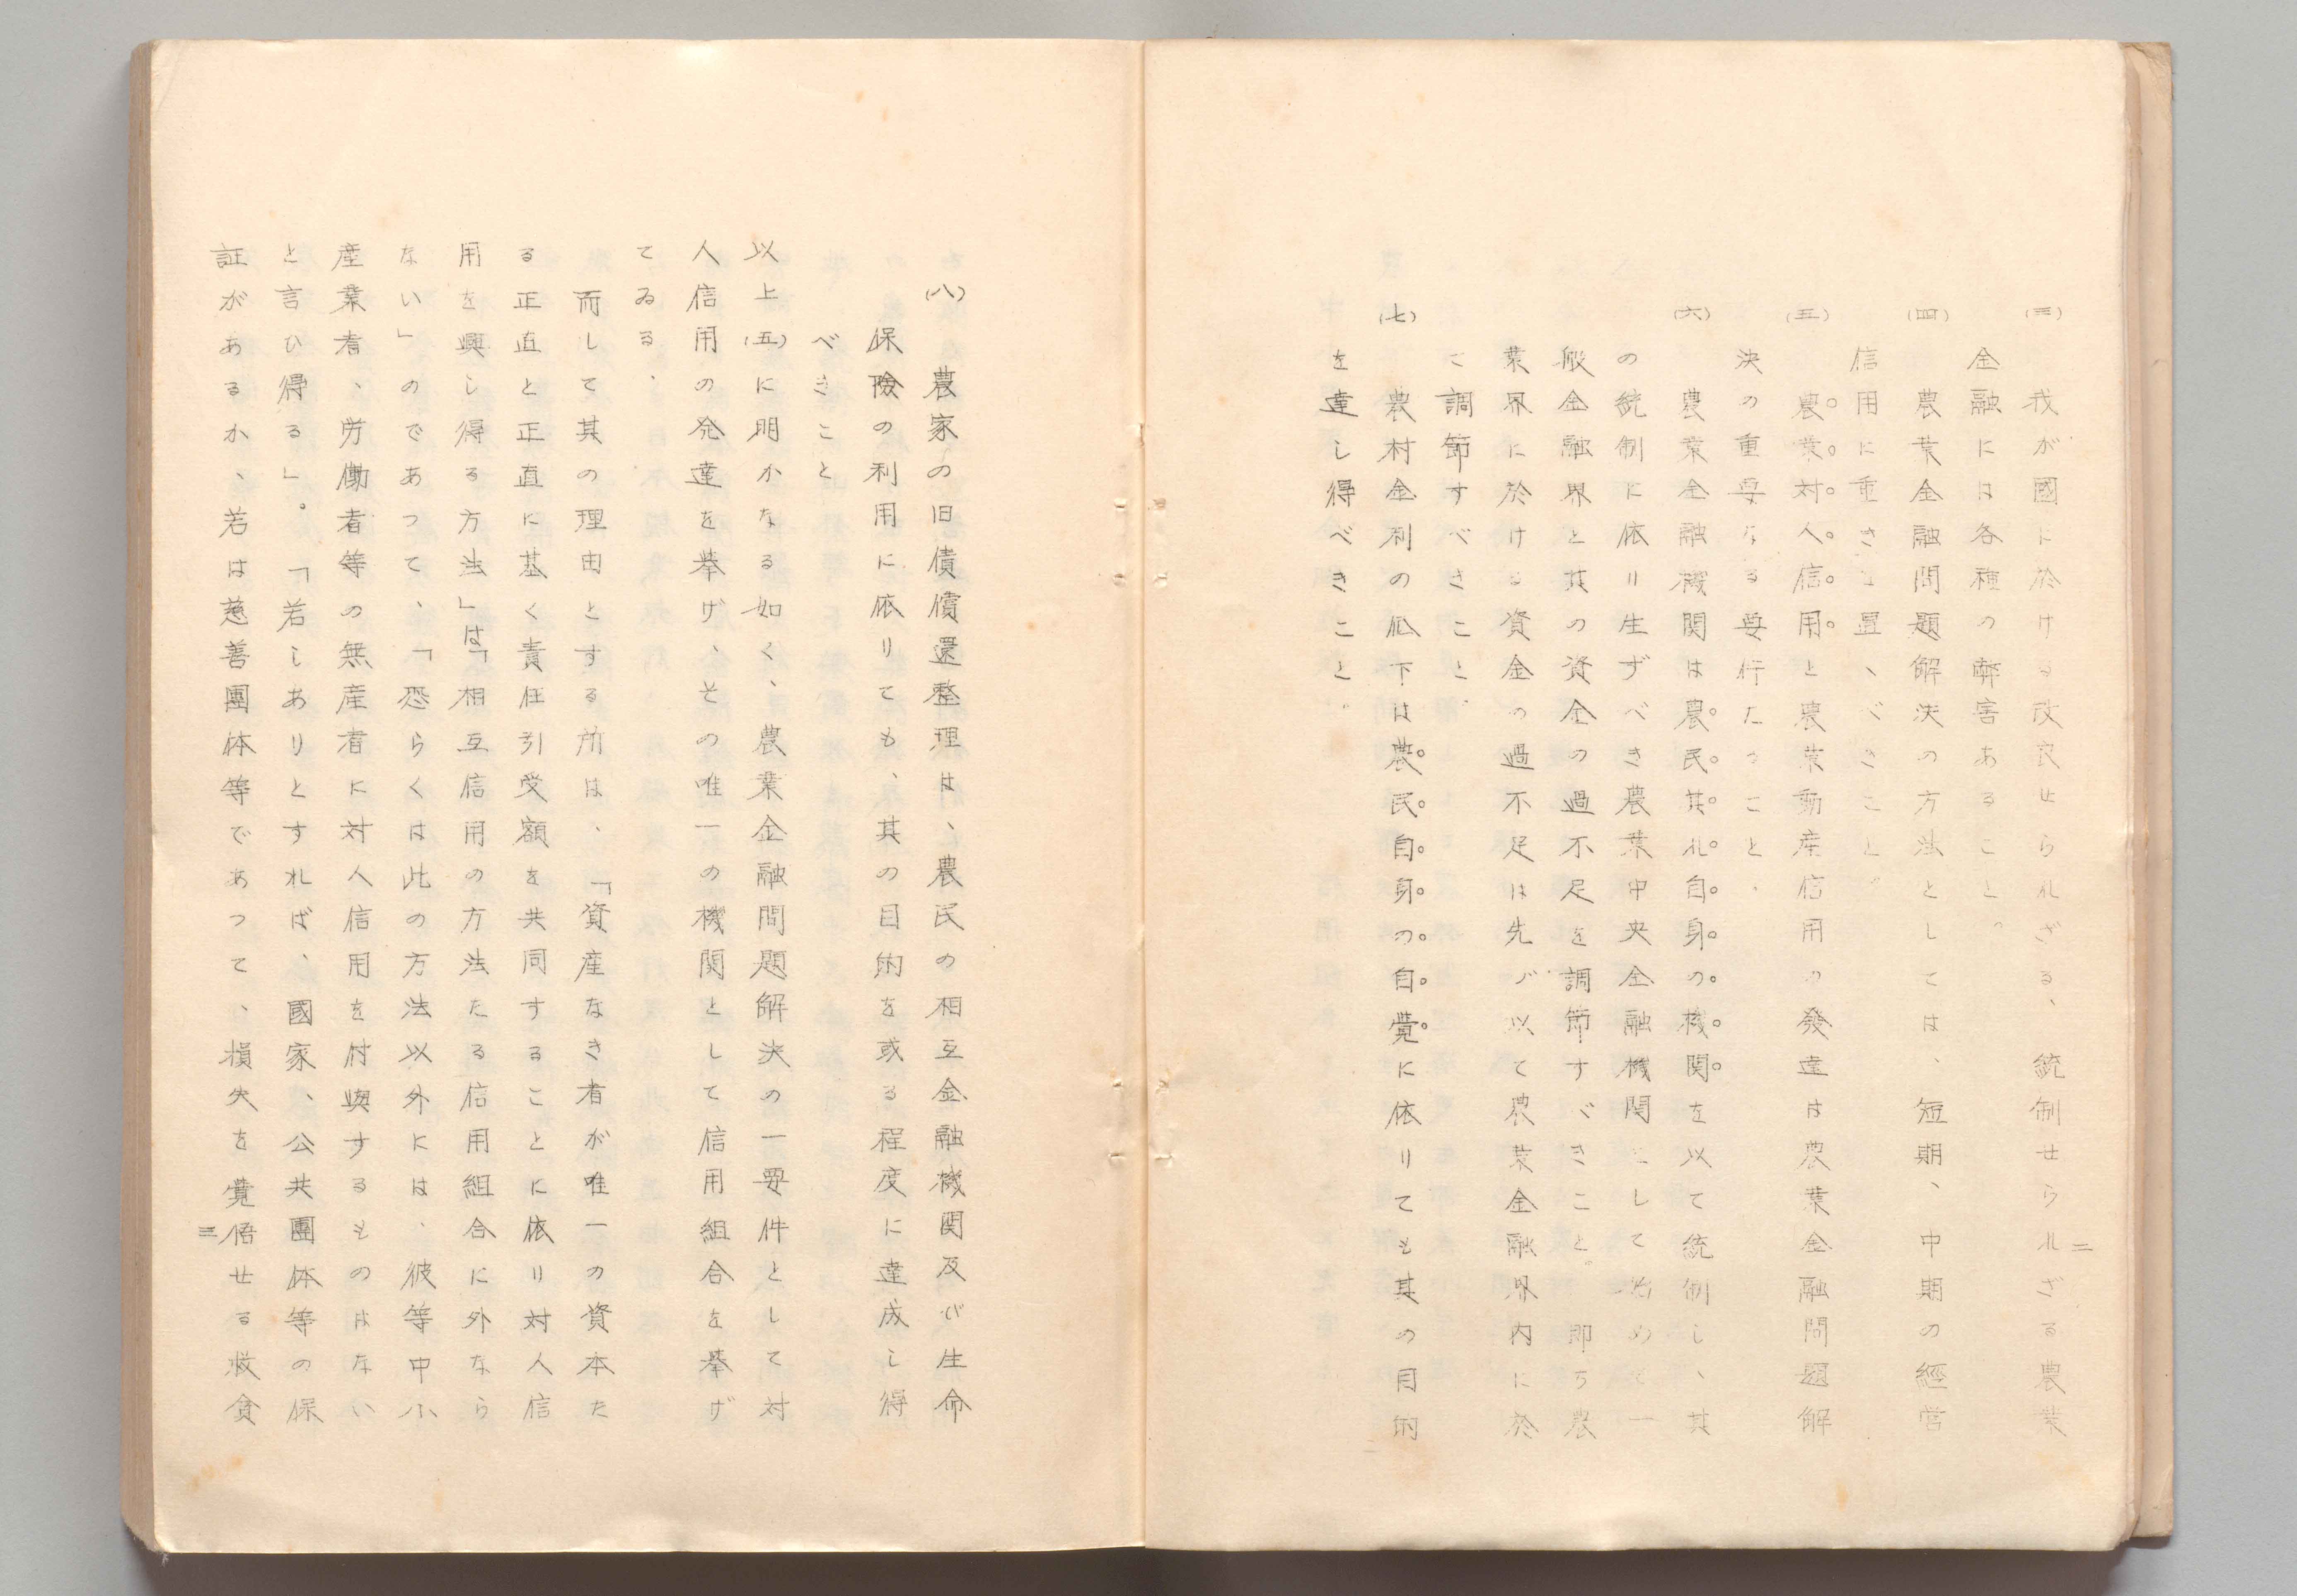 二
(三)
我が國に於ける改良せられざる、統制せられざる農業
金融には各種の弊害あること。
(四)
農業金融問題解決の方法としては、短期、中期の經営
信用に重きを置くべきこと。
(五)
農業対人信用と農業動産信用の発達は農業金融問題解
決の重要なる要件たること、
(六)
農業金融機関は農民其れ自身の機関を以て統制し、其
の統制に依り生ずべき農業中央金融機関をして始めて一
般金融界と其の資金の過不足を調節すべきこと。即ち農
業界に於ける資金の過不足は先づ以て農業金融界内に於
て調節すべきこと、
(七)
農村金利の低下は農民自身の自覺に依りても其の目的
を達し得べきこと。
(八)
農家の旧債償還整理は、農民の相互金融機関及び生命
保険の利用に依りても、其の目的を或る程度に達成し得
べきこと
以上(五)に明かなる如く、農業金融問題解決の一要件として対
人信用の発達を挙げ、その唯一の機関として信用組合を挙げ
てゐる、
而して其の理由とする所は、「資産なき者が唯一の資本た
る正直と正直に基く責任引受額を共同することに依り対人信
用を興し得る方法」は「相互信用の方法たる信用組合に外なら
ない」のであつて、「恐らくは此の方法以外には、彼等中小
産業者、労働者等の無産者に対人信用を付與するものはない
と言ひ得る」。「若しありとすれば、國家、公共團体等の保
証があるか、若は慈善團体等であつて、損失を覺悟せる救貧
三